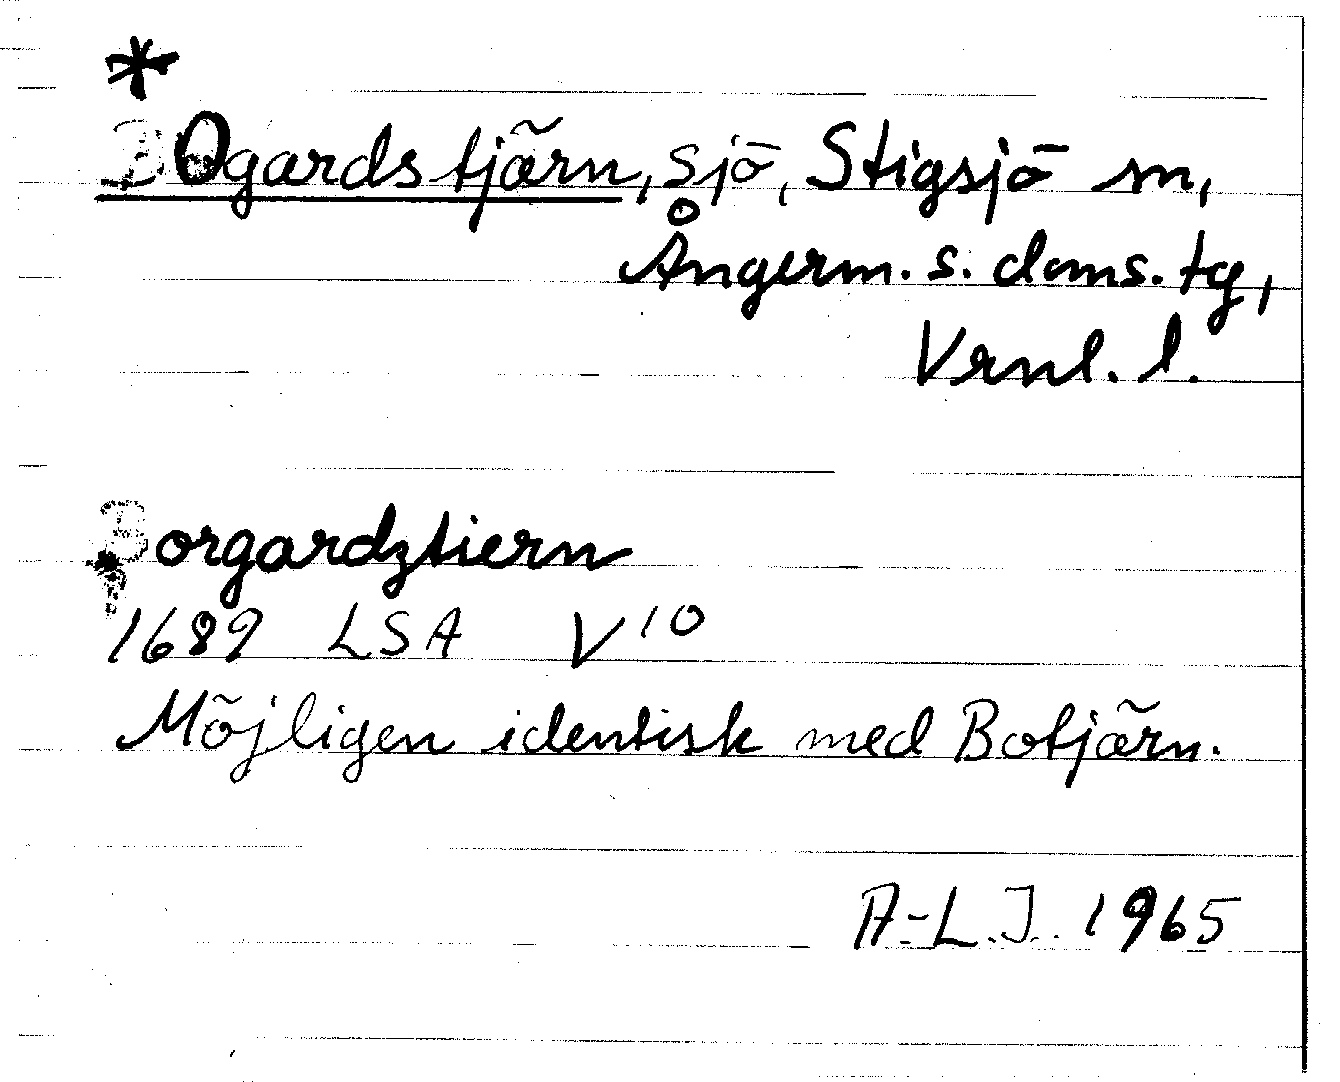 *
Ogardstjärn, sjö, Stigsjö sn,
Ångerm. s. doms. tg,
Vrnl. l.
orgardztiern
1689 LSA V10
Möjligen identisk med Botjärn.
A-L.J. 1965